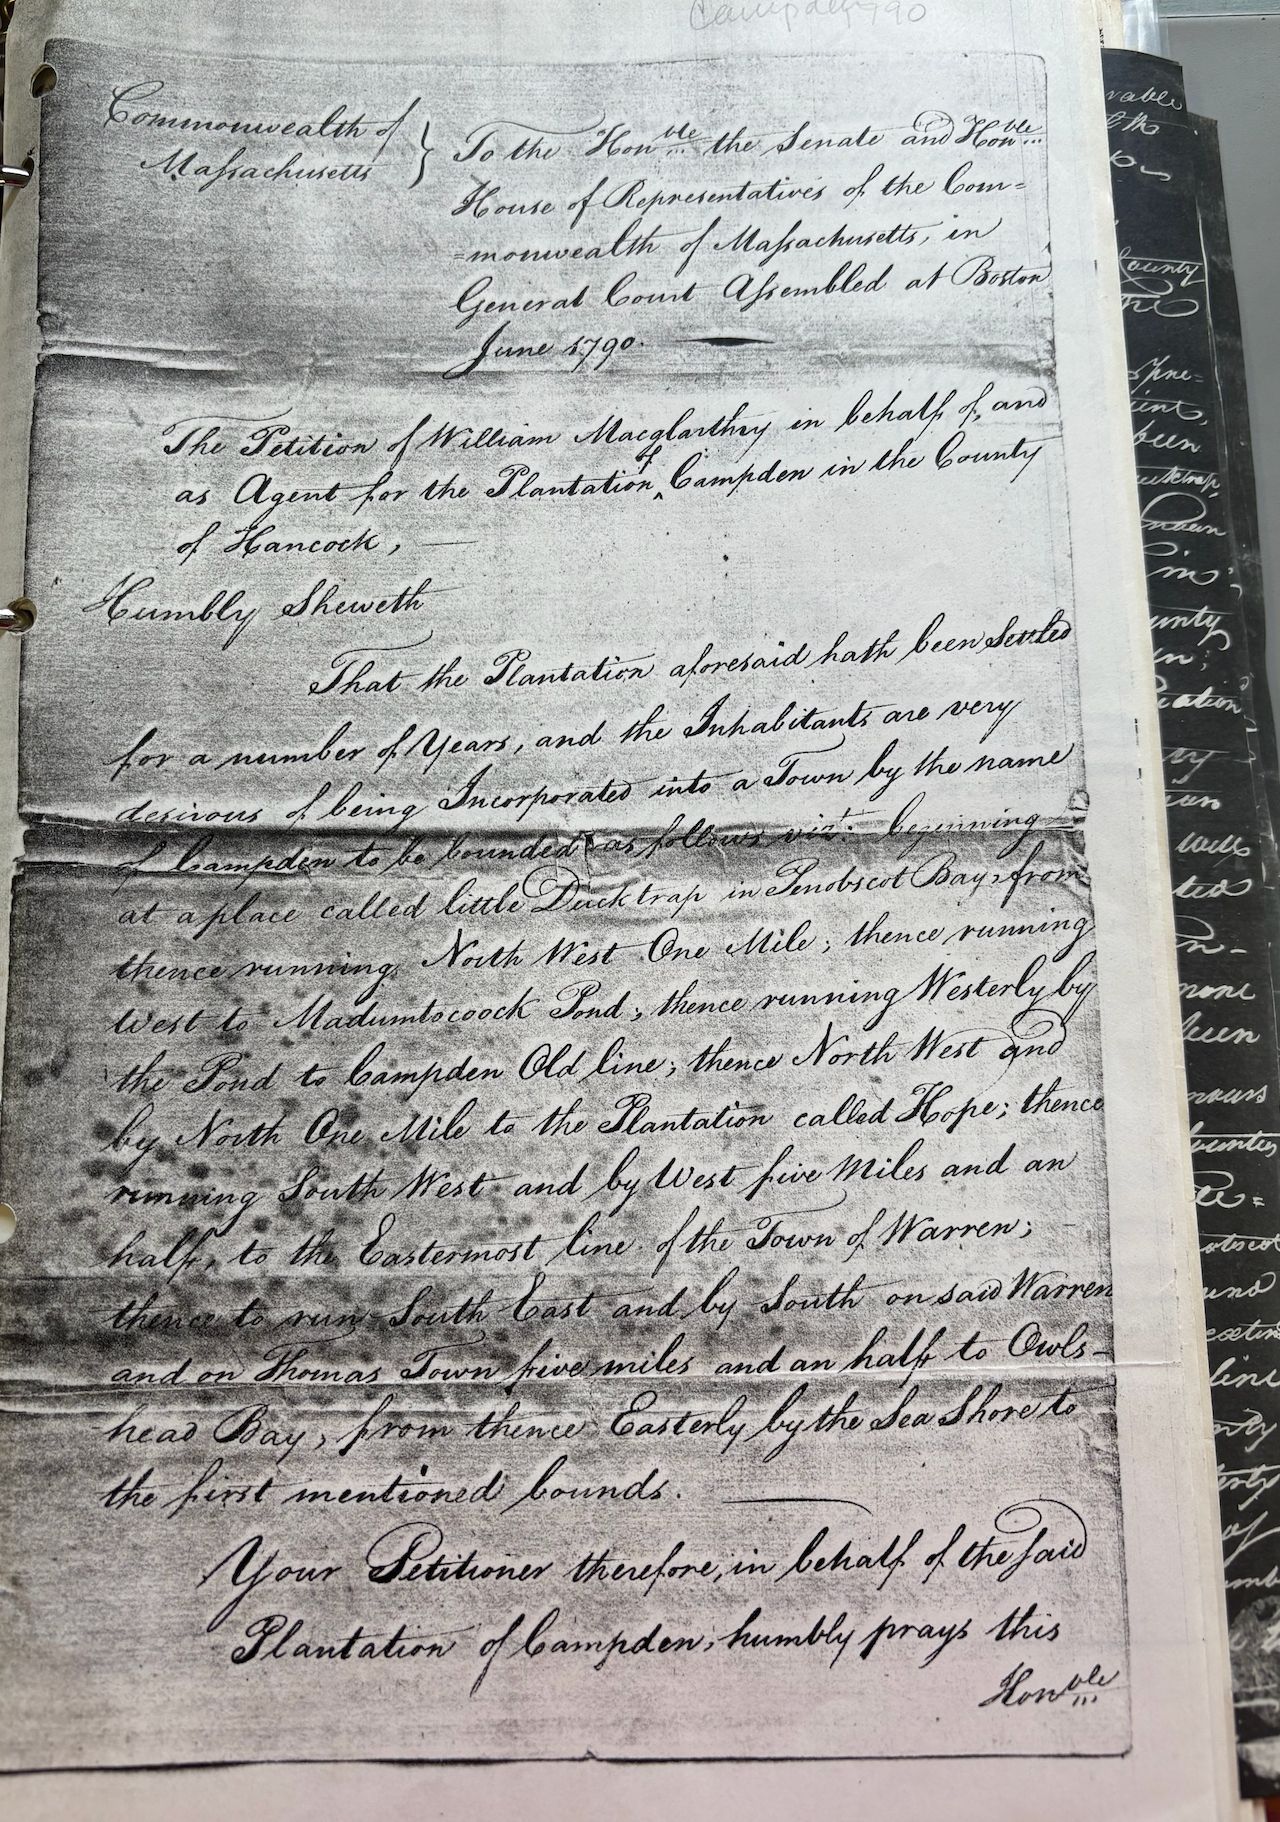 Campden 1790
Commonwealth of
Massachusetts } To the Honble the Senate and Honble
House of Representatives of the Com=
=monwealth of Massachusetts, in
General Court Assembled at Boston
June 1790.
The Petition of William Macglarthry in behalf of, and
as Agent for the Plantation of Campden in the County
of Hancock,
Humbly Sheweth
That the Plantation aforesaid hath been Settled
for a number of Years, and the Inhabitants are very
desirous of being Incorporated into a Town by the name
of Campden to be bounded as follows vizt: beginning
at a place called little Ducktrap in Penobscot Bay, from
thence running North West One Mile; thence running
West to Madumtocoock Pond; thence running Westerly by
the Pond to Campden Old line; thence North West and
by North One Mile to the Plantation called Hope; thence
running South West and by West five Miles and an
half, to the Eastermost line of the Town of Warren;
thence to run South East and by South on said Warren
and on Thomas Town five miles and an half to Owls-
head Bay, from thence Easterly by the Sea Shore to
the first mentioned bounds.
Your Petitioner therefore, in behalf of the said
Plantation of Campden, humbly prays this
Honble
vable
County
the
Spre=
been
Ducktrap,
in
unty
uation
by
well
ted
none
been
ounty
Re=
line
of